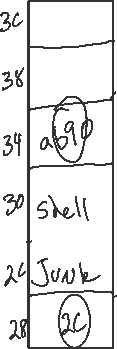 3C
38
34 a690
30 shell
2C Junk
28 2C